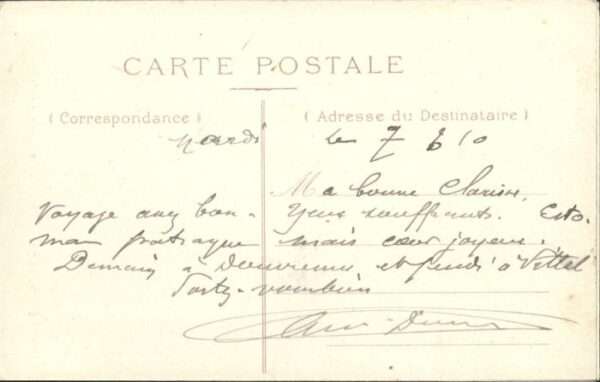 CARTE POSTALE
( Correspondance )
( Adresse du Destinataire )
Mardi le 7 6 10
Ma bonne Clarisse,
Voyage assez bon - Yeux souffrants. Esto-
mac patraque mais cœur joyeux.
Demain à et jeudi à Vittel